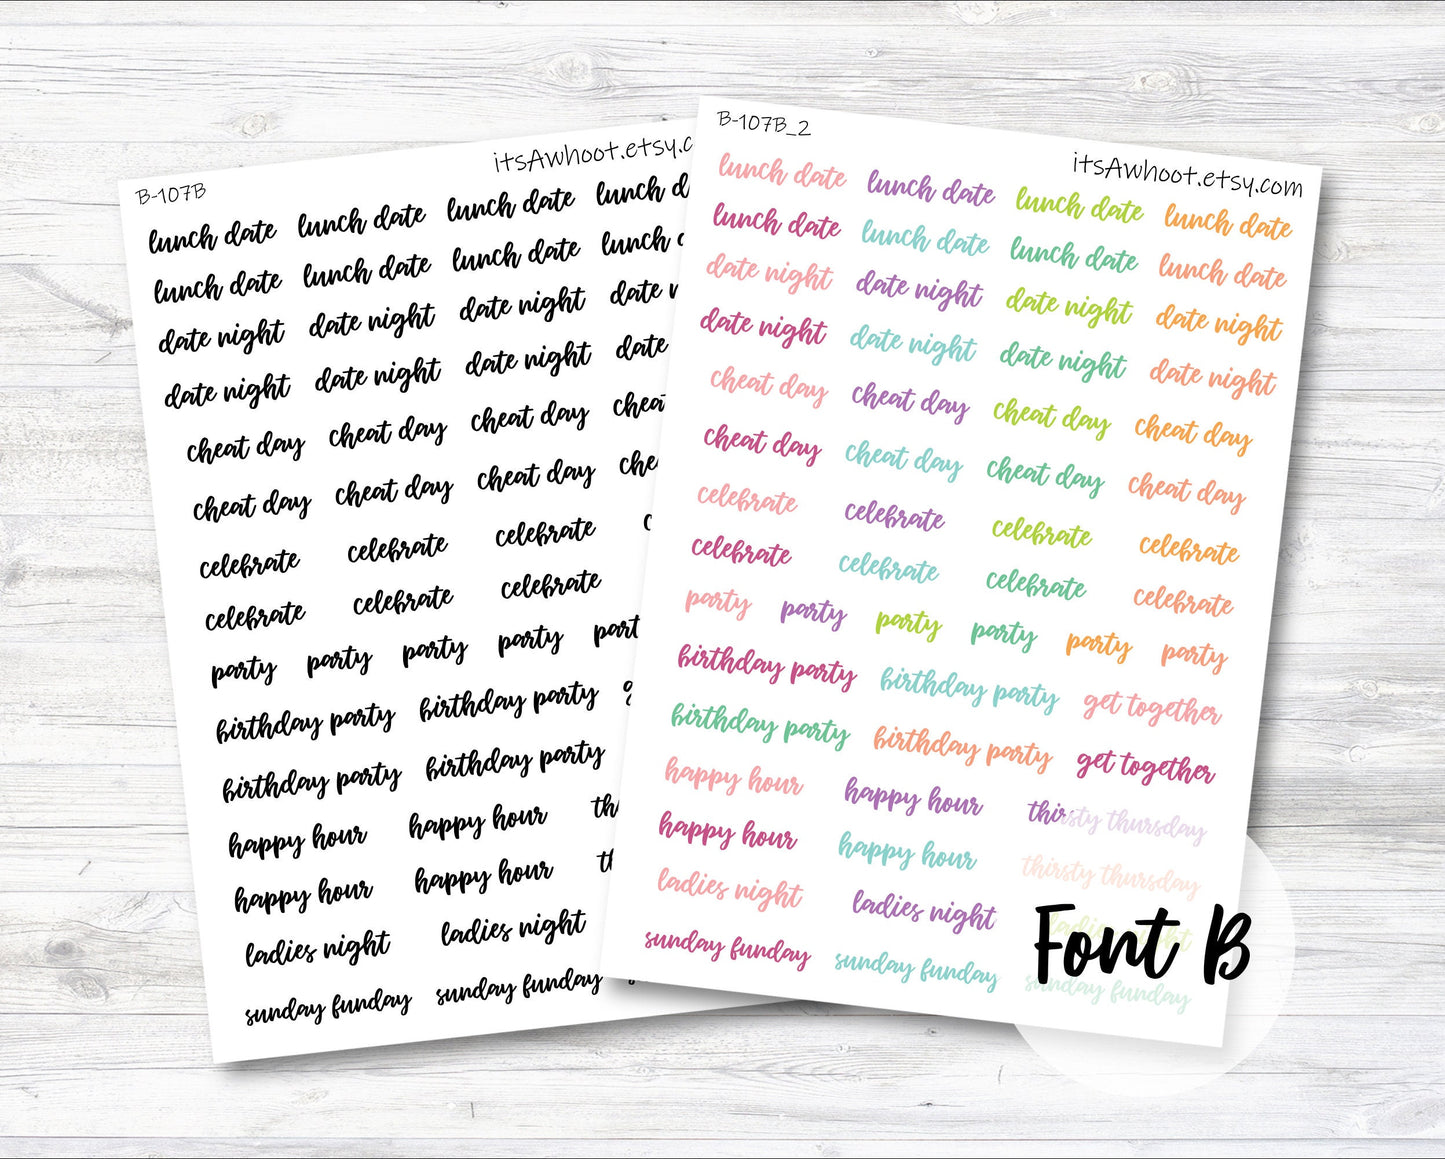 B-107B
itsAwhoot.etsy.c
lunch date lunch date lunch date lunch d
lunch date lunch date lunch date lunch
date night date night date night date
date night date night date night date
cheat day cheat day cheat day cheat
cheat day cheat day cheat day che
celebrate celebrate celebrate
celebrate celebrate celebrate
party party party party party
birthday party birthday party
birthday party birthday party
happy hour happy hour th
happy hour happy hour th
ladies night ladies night
sunday funday sunday funday
B-107B_2
itsAwhoot.etsy.com
lunch date lunch date lunch date lunch date
lunch date lunch date lunch date lunch date
date night date night date night date night
date night date night date night date night
cheat day cheat day cheat day cheat day
cheat day cheat day cheat day cheat day
celebrate celebrate celebrate celebrate
celebrate celebrate celebrate celebrate
party party party party party party
birthday party birthday party get together
birthday party birthday party get together
happy hour happy hour thirsty thursday
happy hour happy hour thirsty thursday
ladies night ladies night ladies night
sunday funday sunday funday sunday funday
Font B